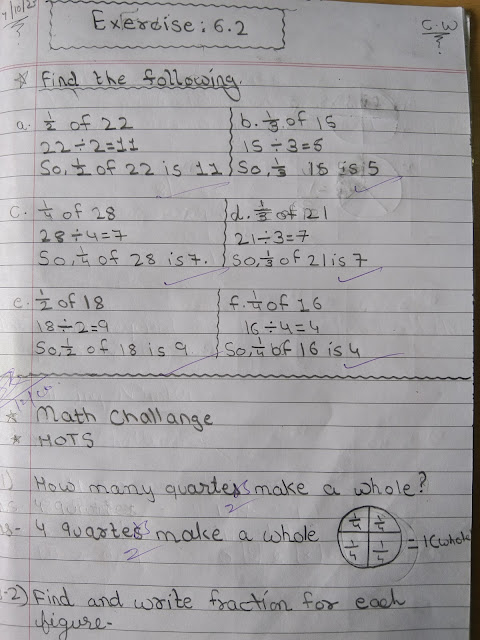 Exercise: 6.2
C.W
?
* Find the following.
a. 1/2 of 22
22÷2=11
So, 1/2 of 22 is 11
b. 1/3 of 15
15÷3=5
So, 1/3 15 is 5
C. 1/4 of 28
28÷4=7
So, 1/4 of 28 is 7.
d. 1/3 of 21
21÷3=7
So, 1/3 of 21 is 7
e. 1/2 of 18
18÷2=9
So, 1/2 of 18 is 9
f. 1/4 of 16
16÷4=4
So, 1/4 of 16 is 4
* Math Challange
* HOTS
1) How many quarters make a whole?
ns- 4 quarters make a whole
1/4 1/4
1/4 1/4
= 1(whole
-2) Find and write fraction for each
figure-